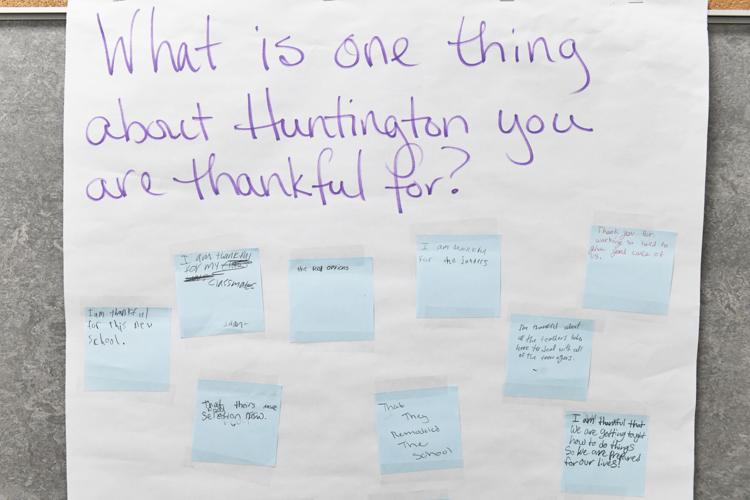 What is one thing
about Huntington you
are thankful for?
I am thankful
for this new
school.
I am thankful
for my
classmates
the
options
I am
for the
Thank you for
working so hard to
good care of
us.
I'm thankful about
all the teachers who
have to deal with all
of the teenagers.
That theirs more
selection now.
That
They
Remodled
The
School
I am thankful that
We are getting taught
how to do things
So we are prepared
for our lives!